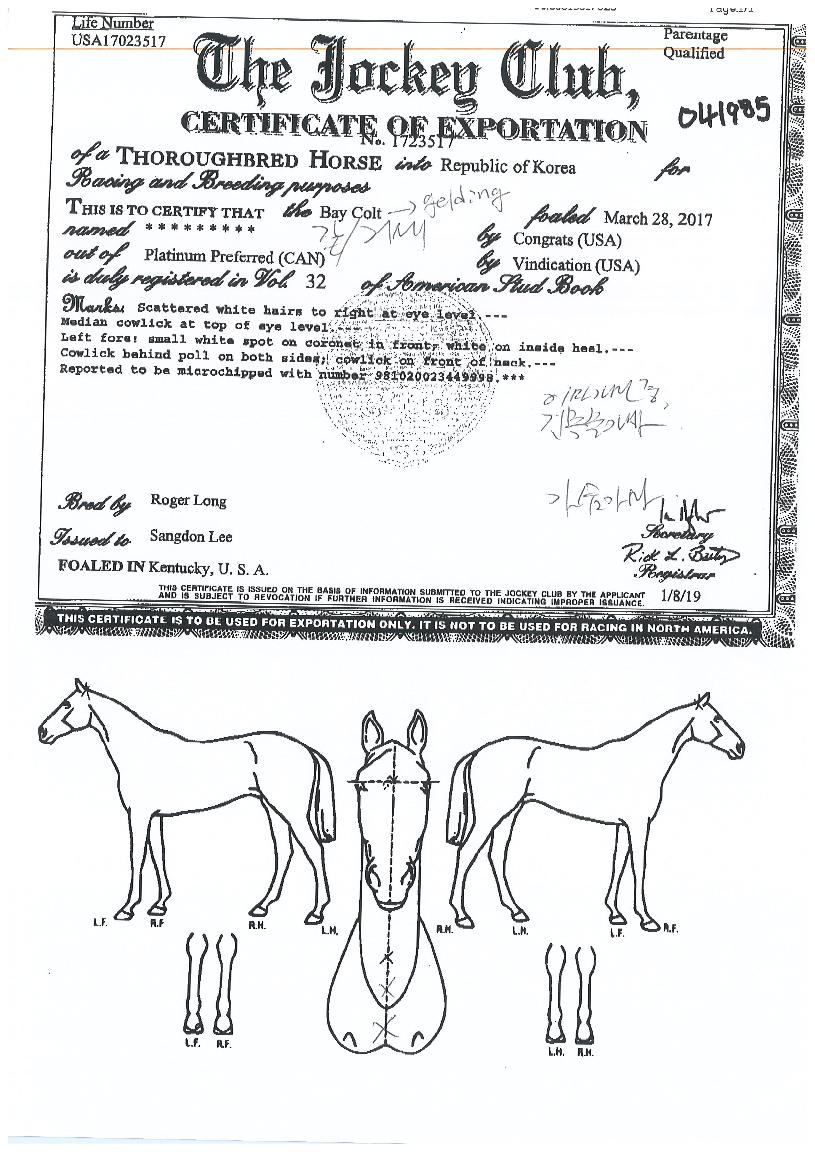 Life Number
USA17023517
Parentage
Qualified
The Jockey Club,
041985
CERTIFICATE OF EXPORTATION
No. 1723517
of a THOROUGHBRED HORSE into Republic of Korea for
Racing and Breeding purposes
THIS IS TO CERTIFY THAT the Bay Colt → gelding foaled March 28, 2017
named * * * * * * * * * by Congrats (USA)
out of Platinum Preferred (CAN) by Vindication (USA)
is duly registered in Vol. 32 of American Stud Book
Marks: Scattered white hairs to right at eye level.---
Median cowlick at top of eye level.---
Left fore: small white spot on coronet in front; white on inside heel.---
Cowlick behind poll on both sides; cowlick on front of neck.---
Reported to be microchipped with number 981020023449998.***
Bred by Roger Long
Issued to Sangdon Lee
Secretary
Registrar
FOALED IN Kentucky, U. S. A.
THIS CERTIFICATE IS ISSUED ON THE BASIS OF INFORMATION SUBMITTED TO THE JOCKEY CLUB BY THE APPLICANT
AND IS SUBJECT TO REVOCATION IF FURTHER INFORMATION IS RECEIVED INDICATING IMPROPER ISSUANCE. 1/8/19
THIS CERTIFICATE IS TO BE USED FOR EXPORTATION ONLY. IT IS NOT TO BE USED FOR RACING IN NORTH AMERICA.
L.F. R.F R.H. L.H. R.H. L.H. L.F. R.F.
L.F. R.F. L.H. R.H.